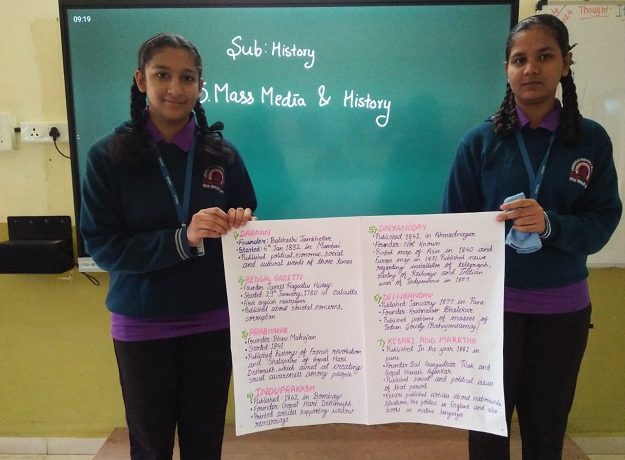 09:19
Sub: History
5. Mass Media & History
Thought-
DARPAN
Founder: Balshastri Jambhekar
Started: 6th Jan 1832 in Mumbai
Published political, economic, social
and cultural events of those times
BENGAL GAZETTE
Founder James Augustus Hickey
Started 29th January, 1780 in Calcutta
First english newspaper
Published about societal concerns,
corruption
PRABHAKAR
Founder Bhau Mahajan
Started 1841
Published history of French revolution
and 'Shatapatre' of Gopal Hari
Deshmukh which aimed at creating
social awareness among people
INDUPRAKASH
Published 1862 in Bombay
Founder Gopal Hari Deshmukh
Printed articles supporting widow
remarriage
DNYANODAY
Published 1842 in Ahmadnagar
Founder: Not Known
Printed map of Asia in 1840 and
Europe map in 1851 Published news
regarding installation of telegraph,
starting of Railways and Indian
war of Independence in 1857
DEENBANDHU
Published January 1877 in Pune
Founder Krishnarao Bhalekar
Published problems of masses of
Indian Society (Bahujansamaj)
KESARI AND MARATHA
Published In the year 1881 in
pune
Founder Bal Gangadhar Tilak and
Gopal Ganesh Agarkar
Published social and political issues
of that period
Kesari published articles about nationwide
situations, the politics in England and also
books in native languages